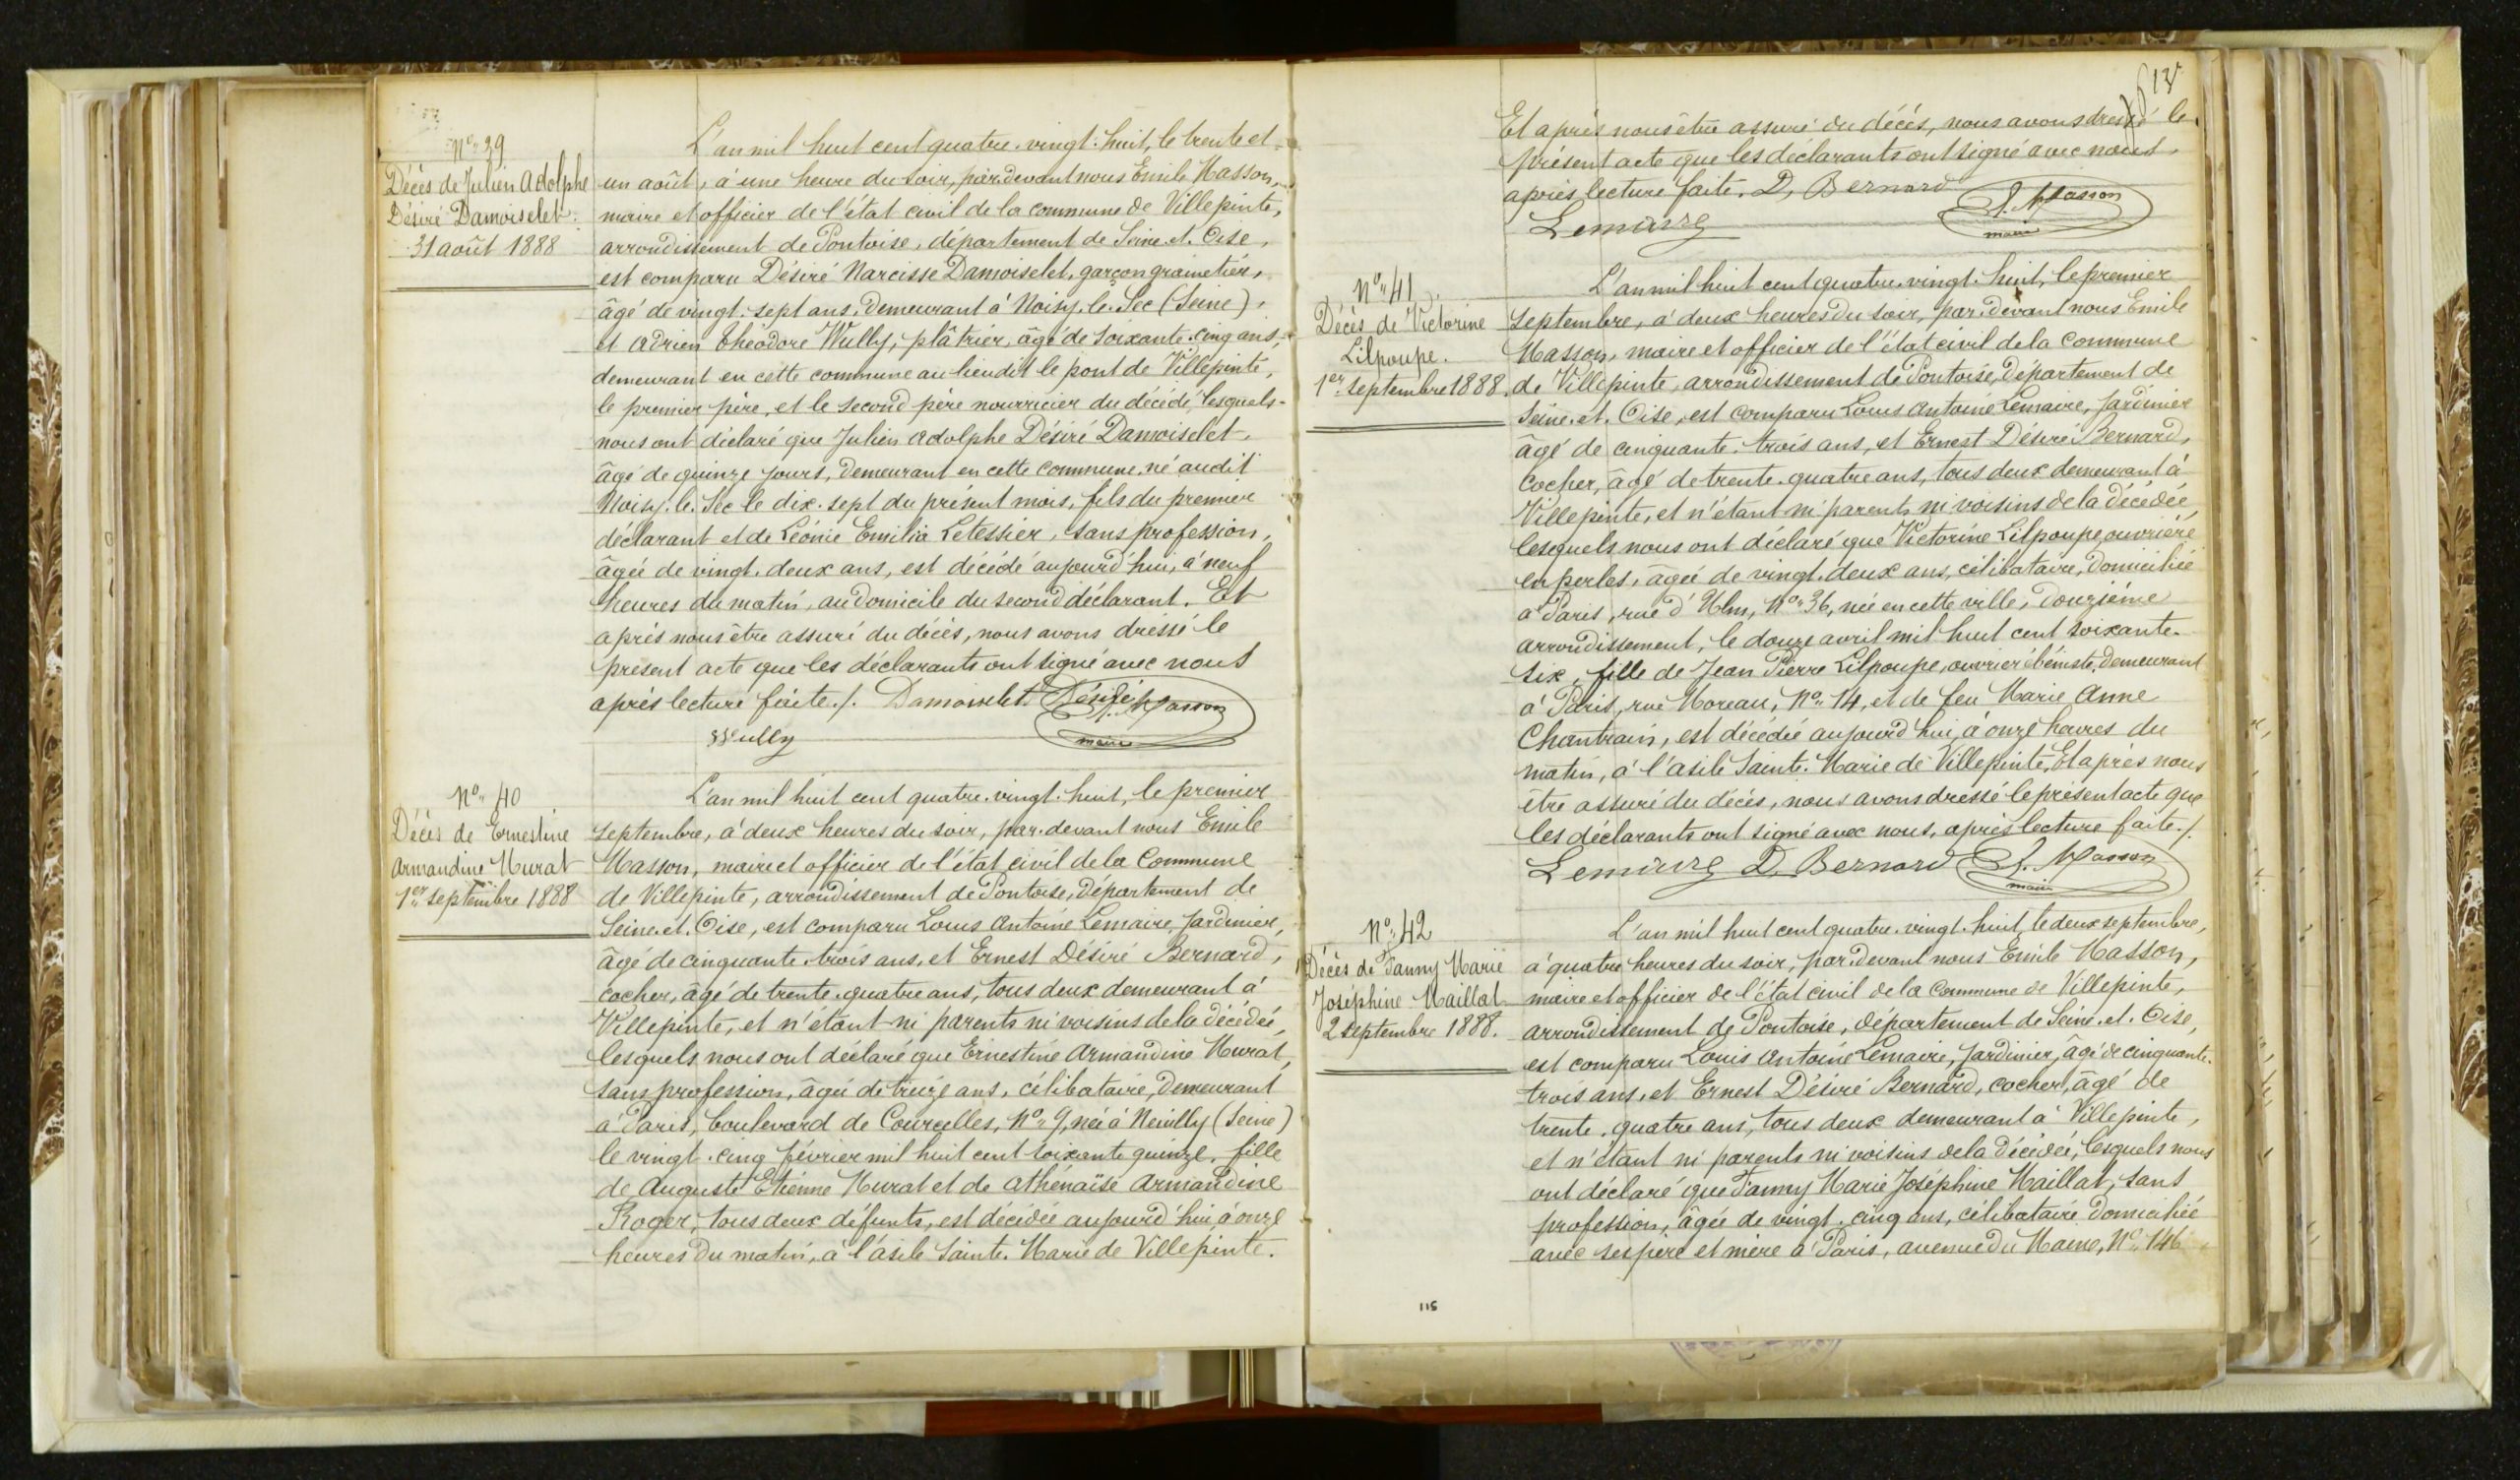 N° 39
Décès de Julien Adolphe
Désiré Damoiselet.
31 août 1888
L'an mil huit cent quatre-vingt-huit, le trente et
un août, à une heure du soir, par-devant nous Emile Masson,
maire et officier de l'état civil de la commune de Villepinte,
arrondissement de Pontoise, département de Seine-et-Oise,
est comparu Désiré Narcisse Damoiselet, garçon grainetier,
âgé de vingt-sept ans, demeurant à Noisy-le-Sec (Seine),
et Adrien Théodore Wully, plâtrier, âgé de soixante-cinq ans,
demeurant en cette commune au lieudit le pont de Villepinte,
le premier père, et le second père nourricier du décédé, lesquels
nous ont déclaré que Julien Adolphe Désiré Damoiselet,
âgé de quinze jours, demeurant en cette commune, né audit
Noisy-le-Sec le dix-sept du présent mois, fils du premier
déclarant et de Léonie Emilia Letessier, sans profession,
âgée de vingt-deux ans, est décédé aujourd'hui, à neuf
heures du matin, au domicile du second déclarant. Et
après nous être assuré du décès, nous avons dressé le
présent acte que les déclarants ont signé avec nous
après lecture faite./. Damoiselet Désiré E. Masson
Wully maire
N° 40
Décès de Ernestine
Armandine Murat
1er septembre 1888
L'an mil huit cent quatre-vingt-huit, le premier
septembre, à deux heures du soir, par-devant nous Emile
Masson, maire et officier de l'état civil de la Commune
de Villepinte, arrondissement de Pontoise, département de
Seine-et-Oise, est comparu Louis Antoine Lemaire, jardinier,
âgé de cinquante-trois ans, et Ernest Désiré Bernard,
cocher, âgé de trente-quatre ans, tous deux demeurant à
Villepinte, et n'étant ni parents ni voisins de la décédée,
lesquels nous ont déclaré que Ernestine Armandine Murat,
sans profession, âgée de treize ans, célibataire, demeurant
à Paris, boulevard de Courcelles, N° 9, née à Neuilly (Seine)
le vingt-cinq février mil huit cent soixante quinze, fille
de Auguste Etienne Murat et de Athénaïse Armandine
Roger, tous deux défunts, est décédée aujourd'hui, à onze
heures du matin, à l'asile Sainte-Marie de Villepinte.
13
Et après nous être assuré du décès, nous avons dressé le
présent acte que les déclarants ont signé avec nous,
après lecture faite. D, Bernard E. Masson
Lemaire maire
N° 41
Décès de Victorine
Lilpoupe.
1er septembre 1888.
L'an mil huit cent quatre-vingt-huit, le premier
septembre, à deux heures du soir, par-devant nous Emile
Masson, maire et officier de l'état civil de la commune
de Villepinte, arrondissement de Pontoise, département de
Seine-et-Oise, est comparu Louis Antoine Lemaire, jardinier
âgé de cinquante-trois ans, et Ernest Désiré Bernard,
cocher, âgé de trente-quatre ans, tous deux demeurant à
Villepinte, et n'étant ni parents ni voisins de la décédée,
lesquels nous ont déclaré que Victorine Lilpoupe, ouvrière
en perles, âgée de vingt-deux ans, célibataire, domiciliée
à Paris, rue d'Ulm, N° 36, née en cette ville, douzième
arrondissement, le douze avril mil huit cent soixante-
six, fille de Jean Pierre Lilpoupe, ouvrier ébéniste, demeurant
à Paris, rue Moreau, N° 14, et de feu Marie Anne
Chantrain, est décédée aujourd'hui, à onze heures du
matin, à l'asile Sainte-Marie de Villepinte. Et après nous
être assuré du décès, nous avons dressé le présent acte que
les déclarants ont signé avec nous, après lecture faite./.
Lemaire D. Bernard E. Masson
maire
N° 42
Décès de Fanny Marie
Joséphine Maillat
2 septembre 1888.
L'an mil huit cent quatre-vingt-huit, le deux septembre,
à quatre heures du soir, par-devant nous Emile Masson,
maire et officier de l'état civil de la Commune de Villepinte,
arrondissement de Pontoise, département de Seine-et-Oise,
est comparu Louis Antoine Lemaire, jardinier, âgé de cinquante-
trois ans, et Ernest Désiré Bernard, cocher, âgé de
trente-quatre ans, tous deux demeurant à Villepinte,
et n'étant ni parents ni voisins de la décédée, lesquels nous
ont déclaré que Fanny Marie Joséphine Maillat, sans
profession, âgée de vingt-cinq ans, célibataire domiciliée
avec ses père et mère à Paris, avenue du Maine, N° 146
115